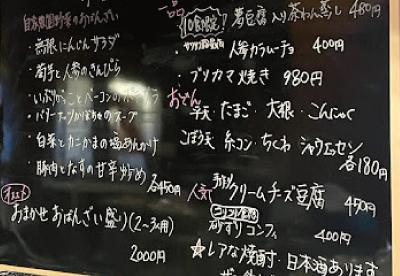 自家農園野菜のおばんざい
・大根にんじんサラダ
・菊芋と人参のきんぴら
・いぶりがっことベーコンのポテサラ
・バターナッツかぼちゃのスープ
・白菜とカニかまの塩あんかけ
・豚肉となすの甘辛炒め
各450円
おまかせおばんざい盛り(2~3人用)
2000円
一品
10食限定! 着豆腐入り茶わん蒸し 480円
・人参カラムーチョ 400円
・ブリカマ焼き 980円
おでん
平天・たまご・大根・こんにゃく
ごぼう天・糸コン・ちくわ・シャウエッセン
各180円
人気! 自家製クリームチーズ豆腐 450円
コリコリ食感
砂ずりコンフィ 400円
☆レアな焼酎・日本酒あります